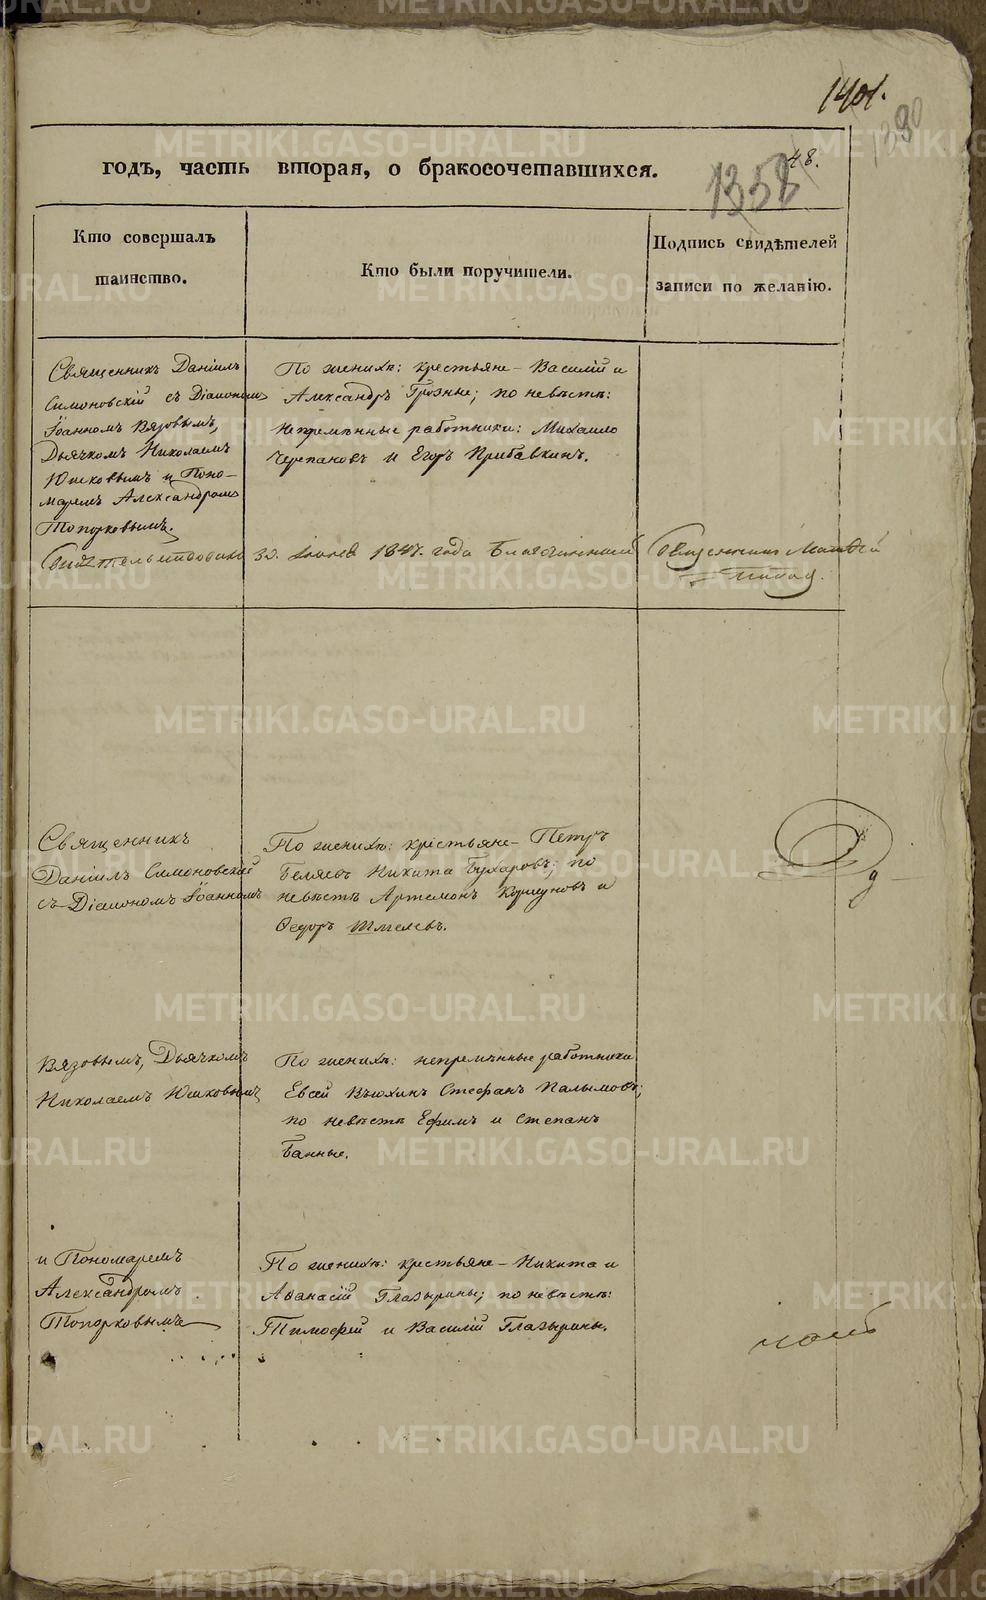 1401.
1390
48.
1358
годъ, часть вторая, о бракосочетавшихся.
Кто совершалъ
таинство.
Кто были поручители.
Подпись свидѣтелей
записи по желанію.
Священникъ Даніилъ
Симоновскій съ Діакономъ
Іоанномъ Вязовымъ,
Дьячкомъ Николаемъ
Юшковымъ и Поно-
маремъ Александромъ
Топорковымъ.
По женихѣ: крестьяне - Василій и
Александръ Грозные; по невѣстѣ:
Непремѣнные работники: Михаило
Черепановъ и Егоръ Прибавкинъ.
Свидѣтельствовалъ 30. 1847. года Благочинный Священникъ Матвей
Священникъ
Даніилъ Симоновскій
съ Діакономъ Іоанномъ
По женихѣ: крестьяне - Петръ
Беляевъ Никита Бухаровъ; по
невѣстѣ Артемонъ Коршуновъ и
Ѳедоръ Шмелевъ.
Вязовымъ, Дьячкомъ
Николаемъ Юшковымъ
По женихѣ: непремѣнные работники
Евсей Вьюхинъ Стефанъ Палымовъ;
по невѣстѣ Ефимъ и Степанъ
Банные.
и Пономаремъ
Александромъ
Топорковымъ
По женихѣ: крестьяне - Никита и
Аѳанасій Глазырины; по невѣстѣ:
Тимофей и Василій Глазырины.
METRIKI.GASO-URAL.RU